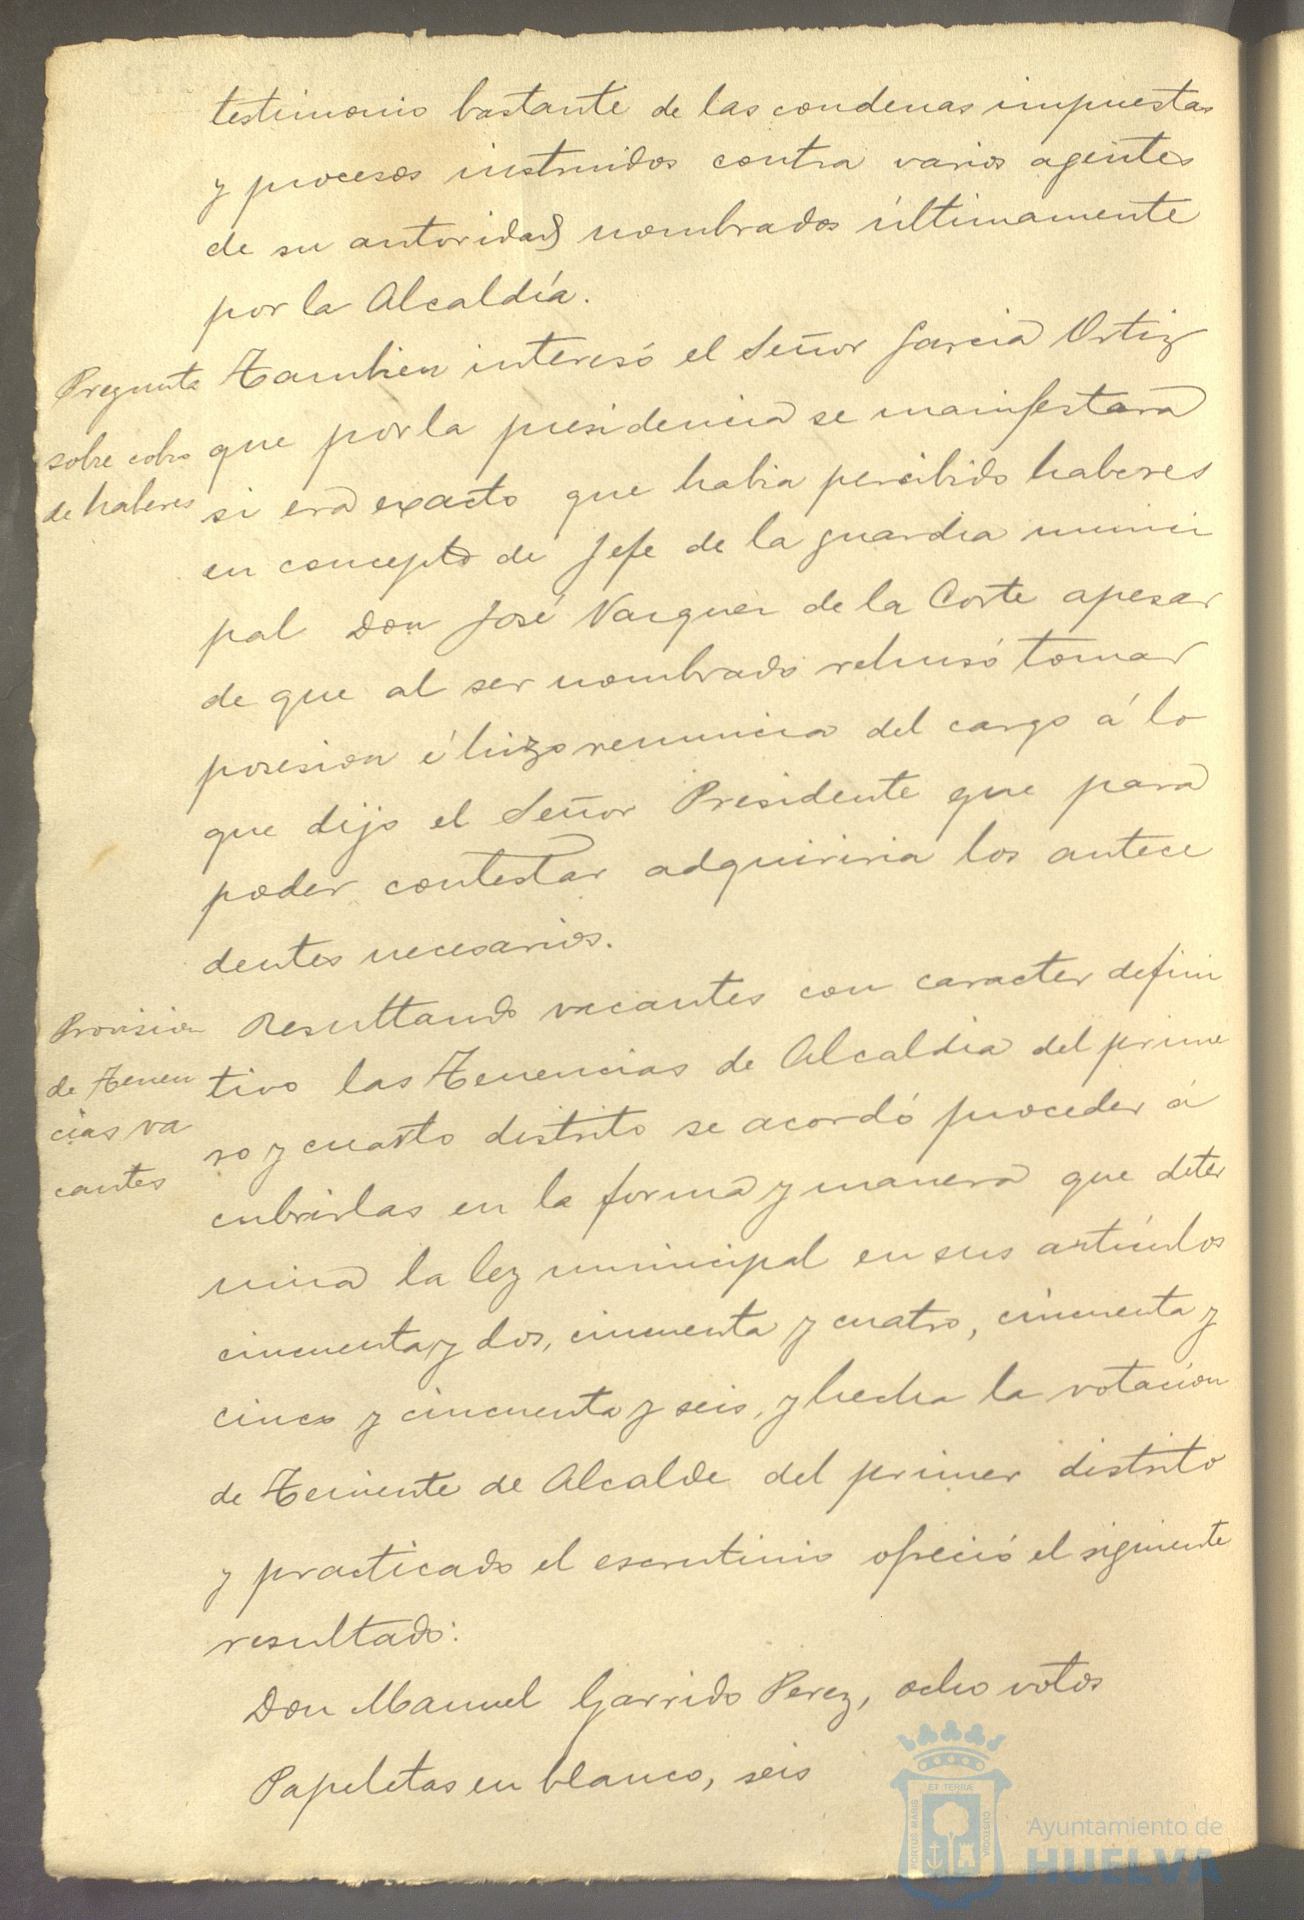 testimonio bastante de las condenas impuestas
y procesos instruidos contra varios agentes
de su autoridad nombrados últimamente
por la Alcaldía.
Pregunta
sobre cobro
de haberes
Tambien interesó el Señor Garcia Ortiz
que por la presidencia se manifestara
si era exacto que habia percibido haberes
en concepto de Jefe de la guardia munici
pal Don José Vazquez de la Corte apesar
de que al ser nombrado rehusó tomar
posesion é hizo renuncia del cargo á lo
que dijo el Señor Presidente que para
poder contestar adquiriria los antece
dentes necesarios.
Provision
de Tenen
cias va
cantes
Resultando vacantes con caracter defini
tivo las Tenencias de Alcaldia del prime
ro y cuarto distrito se acordó proceder á
cubrirlas en la forma y manera que deter
mina la ley municipal en sus artículos
cincuenta y dos, cincuenta y cuatro, cincuenta y
cinco y cincuenta y seis, y hecha la votacion
de Teniente de Alcalde del primer distrito
y practicado el escrutinio ofreció el siguiente
resultado:
Don Manuel Garrido Perez, ocho votos
Papeletas en blanco, seis
ET TERRÆ
PORTUS MARIS
CUSTODIA
Ayuntamiento de
HUELVA